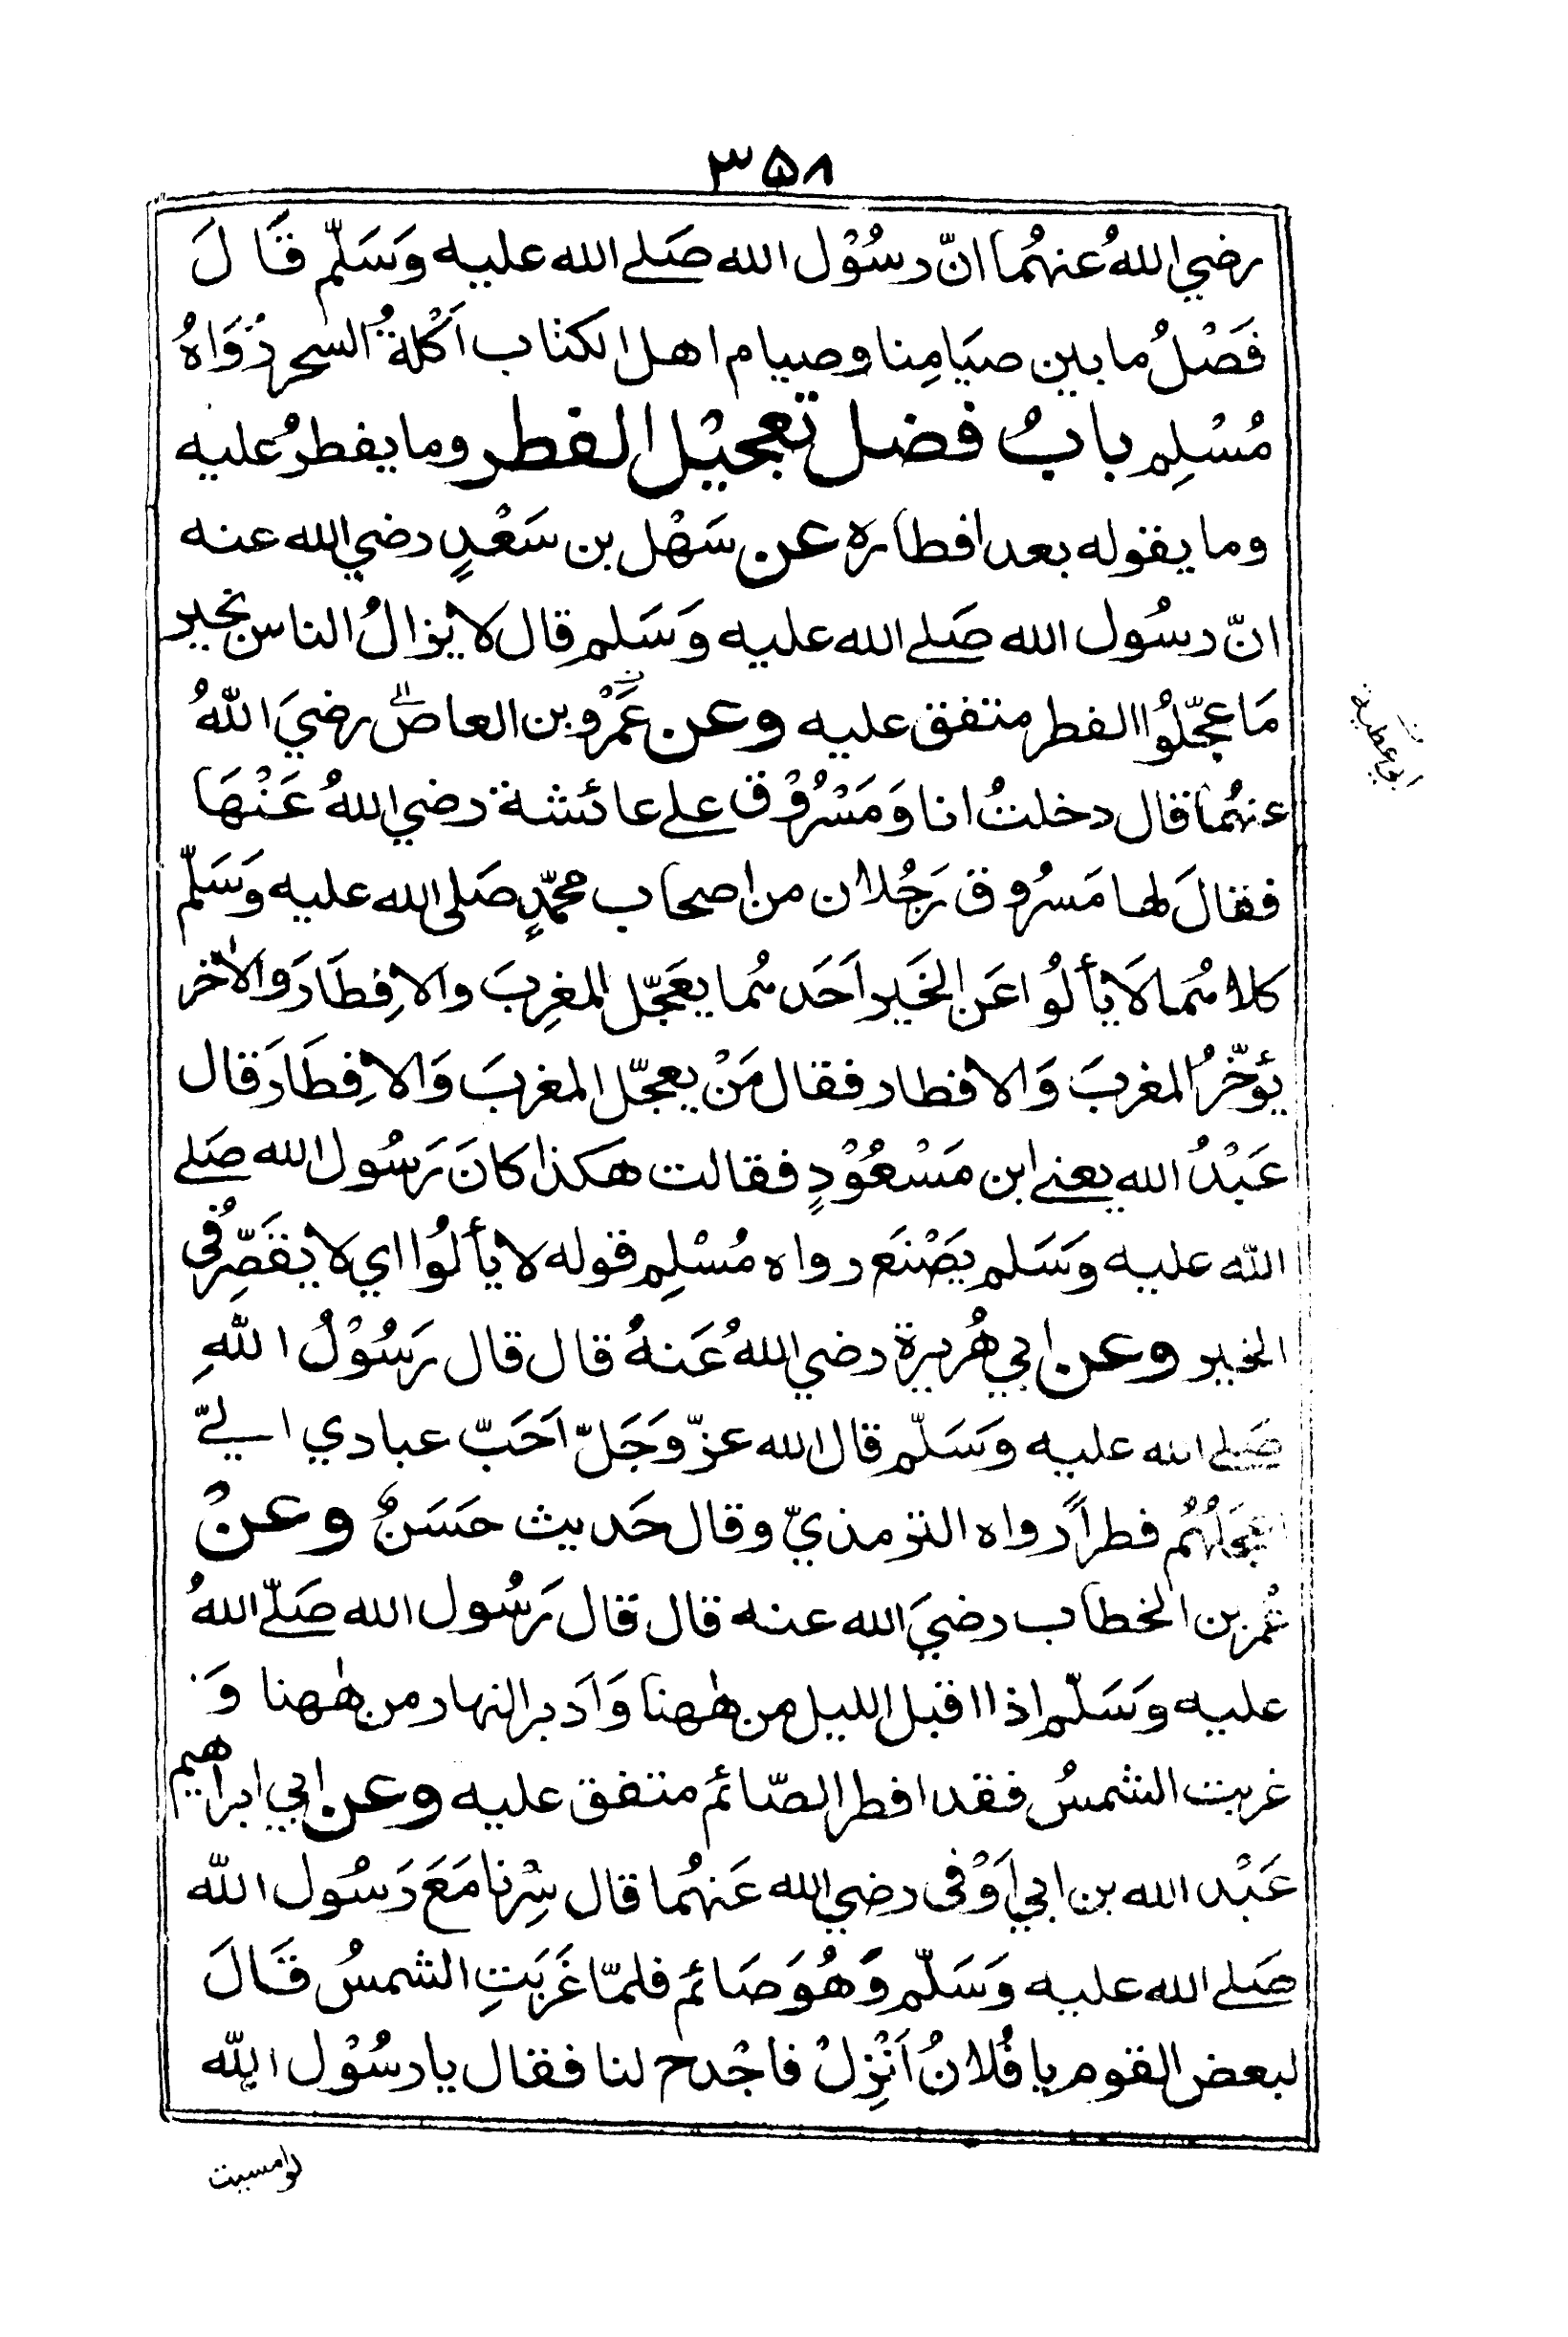 ۳۵۸
رضي اللهُ عنهُما انّ رسُوْل الله صَلے الله عليه وَسَلّم قَالَ
فَصْلُ ما بين صيَامِنا وصيام اهل الكتاب اَكْلةُ السحر رُوَاهُ
مُسْلِم بابُ فضل تعجيْل الفطر وما يفطرُ عليه
وما يقوله بعد افطاره عن سَهْل بن سَعْدٍ رضي الله عنه
انّ رسُول الله صَلے الله عليه وَسَلم قال لا يزالُ الناس بخير
مَا عجّلُوا الفطر متفق عليه وعن عَمْرو بن العاص رضيَ اللهُ
عنهُما قال دخلتُ انا وَمَسْرُوْق علے عائشة رضي اللهُ عَنْهَا
فقالَ لها مَسرُوق رَجُلان من اصحاب محمّدٍ صَلى الله عليه وَسَلّم
كلاهُما لَا يألُوا عَن الخَير اَحَدهُما يعَجّل المغرِبَ والافِطَارَ وَالاٰخر
يُؤخّرُ المغربَ وَالافطار فقال مَنْ يعجّل المغربَ وَالافِطَارَ قال
عَبْدُ الله يعنے ابن مَسْعُوْدٍ فقالت هكذا كانَ رَسُول الله صَلے
الله عليه وَسَلم يَصْنَع رواه مُسْلِم قوله لا يألُوا اي لا يقَصِّرُ في
الخير وعن ابي هُريرة رضي اللهُ عَنهُ قال قال رَسُوْلُ اللهِ
صَلے الله عليه وَسَلّم قال الله عزّ وَجَلّ اَحَبّ عبادي اليّ
اعجَلُهُم فطراً رواه الترمذيّ وقال حَديث حَسَنٌ وعنْ
عُمر بن الخطاب رضيَ الله عنه قال قال رَسُول الله صَلّے اللهُ
عليه وَسَلّم اذا اقبل الليل من هٰهنا وَاَدبر النهار من هٰهنا وَ
غربت الشمسُ فقد افطر الصّائم متفق عليه وعن ابي ابراهيم
عَبْد الله بن ابي اَوْفى رضي الله عَنهُما قال سِرْنا مَعَ رَسُول الله
صَلے الله عليه وَسَلّم وَهُوَ صَائم فلمّا غَرَبَتِ الشمسُ قَالَ
لبعض القوم يا فُلانُ اَنْزِلْ فاجْدح لنا فقال يا رسُوْل الله
ابي عطية
لو امسيت